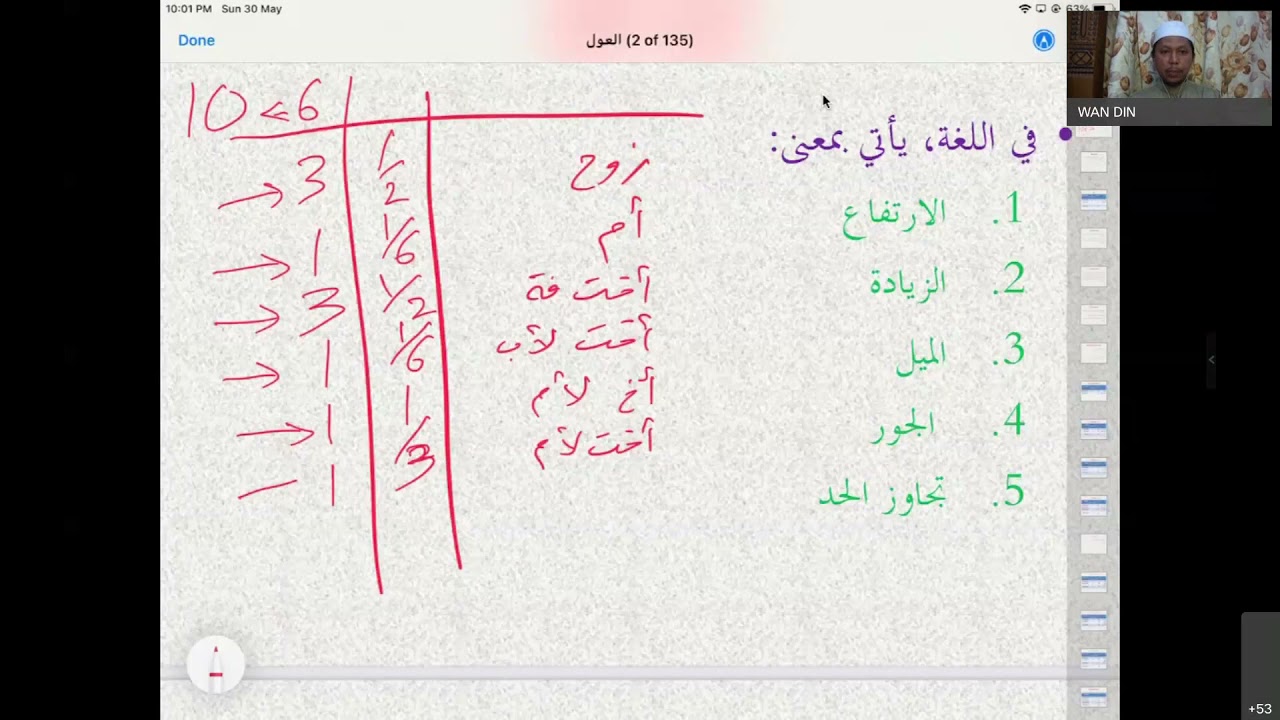 10:01 PM Sun 30 May
63%
Done
العول (2 of 135)
WAN DIN
في اللغة، يأتي بمعنى:
1. الارتفاع
2. الزيادة
3. الميل
4. الجور
5. تجاوز الحد
10 << 6
زوج 1/2 3
أم 1/6 1
أخت قة 1/2 3
أخت لأب 1/6 1
أخ لأم 1
أخت لأم 1/3 1
+53